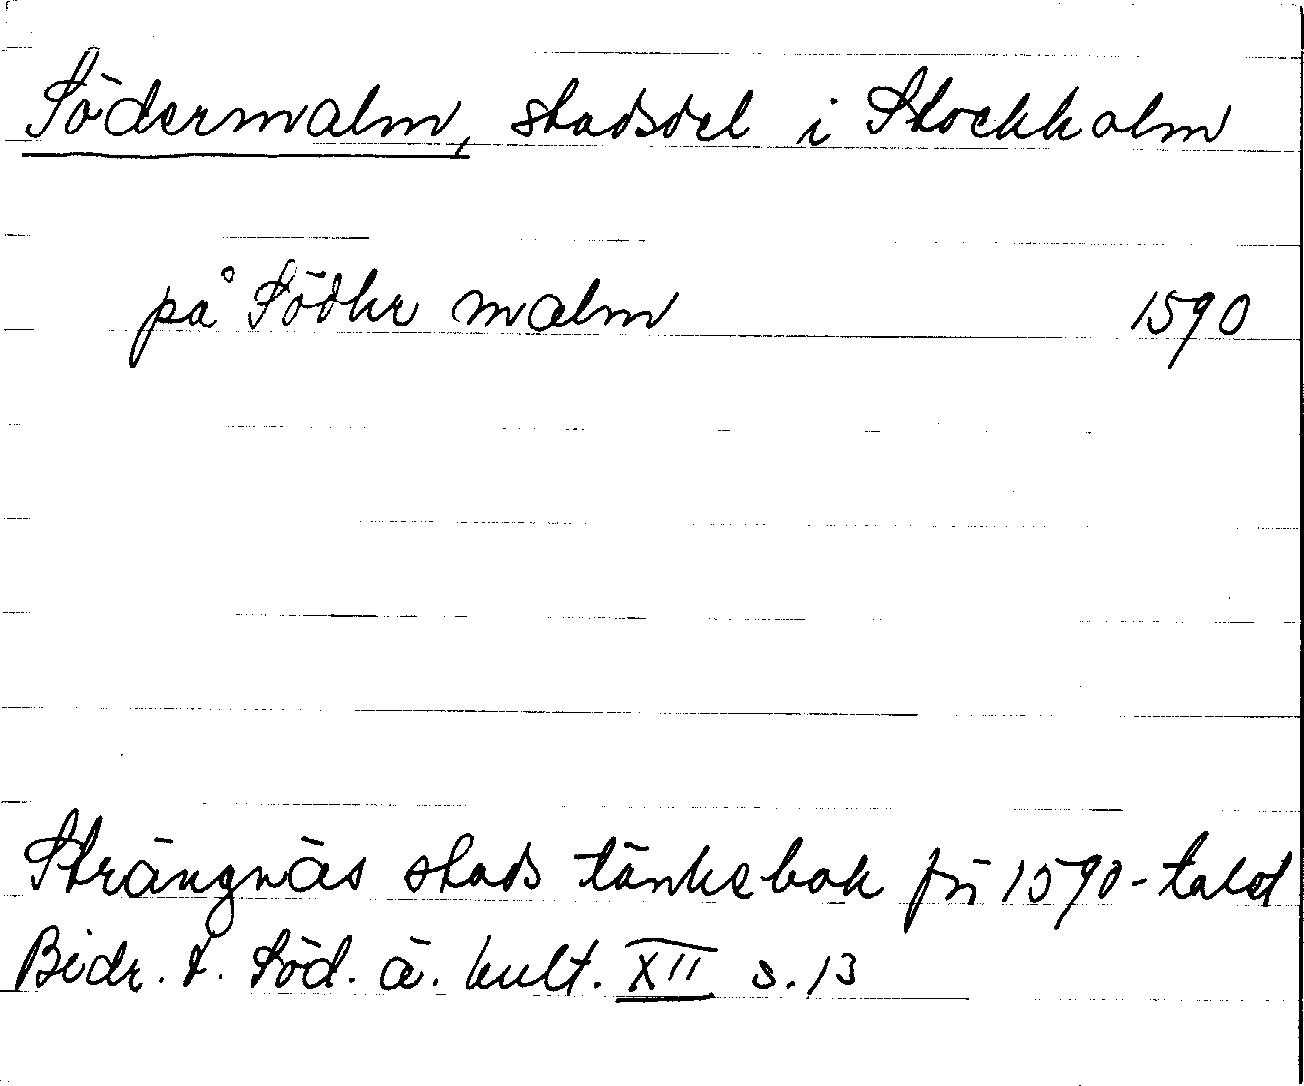 Södermalm, stadsdel i Stockholm
på Södhr malm 1590
Strängnäs stads tänkebok frå 1590-talet
Bidr. t. Söd. ä. kult. XII s. 13